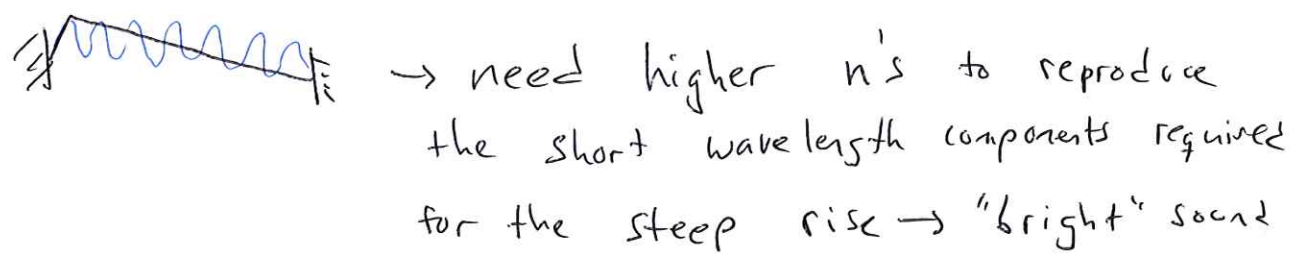 → need higher n's to reproduce
the short wavelength components required
for the steep rise → "bright" sound